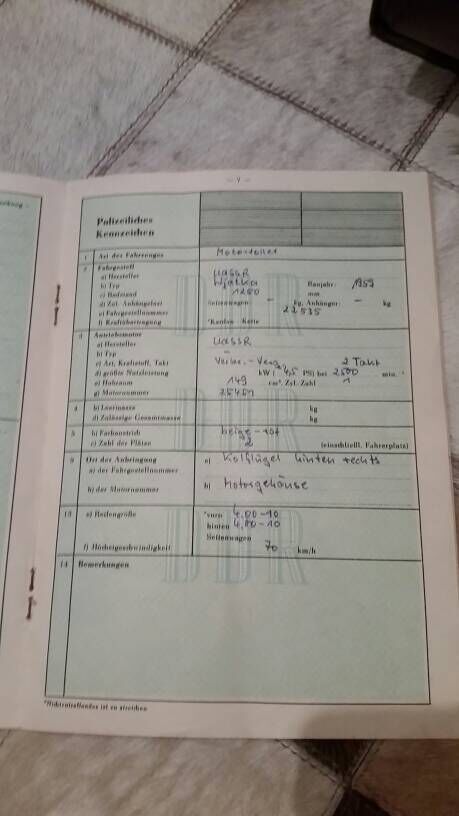 – 7 –
Polizeiliches
Kennzeichen
1 Art des Fahrzeuges Motorroller
2 Fahrgestell
a) Hersteller UdSSR
b) Typ Wjatka Baujahr 1959
c) Radstand 1200 mm
d) Zul. Anhängelast Seitenwagen – kg, Anhänger: – kg
e) Fahrgestellnummer 22535
f) Kraftübertragung *Kardan Kette
3 Antriebsmotor
a) Hersteller UdSSR
b) Typ –
c) Art, Kraftstoff, Takt Verbr.- Verg. 2 Takt
d) größte Nutzleistung kW ( 4,5 PS) bei min.
e) Hubraum 149 cm³ Zyl. Zahl 1
g) Motornummer
4 b) Leermasse kg
d) Zulässige Gesamtmasse kg
5 b) Farbanstrich beige-rot
c) Zahl der Plätze 2 (einschließl. Fahrerplatz)
9 Ort der Anbringung
a) der Fahrgestellnummer a) Kotflügel hinten rechts
b) der Motornummer b) Motorgehäuse
13 a) Radengröße *vorn 4.00-10
hinten 4.00-10
Seitenwagen
f) Höchstgeschwindigkeit 70 km/h
14 Bemerkungen
DDR
DDR
*Nichtzutreffendes ist zu streichen